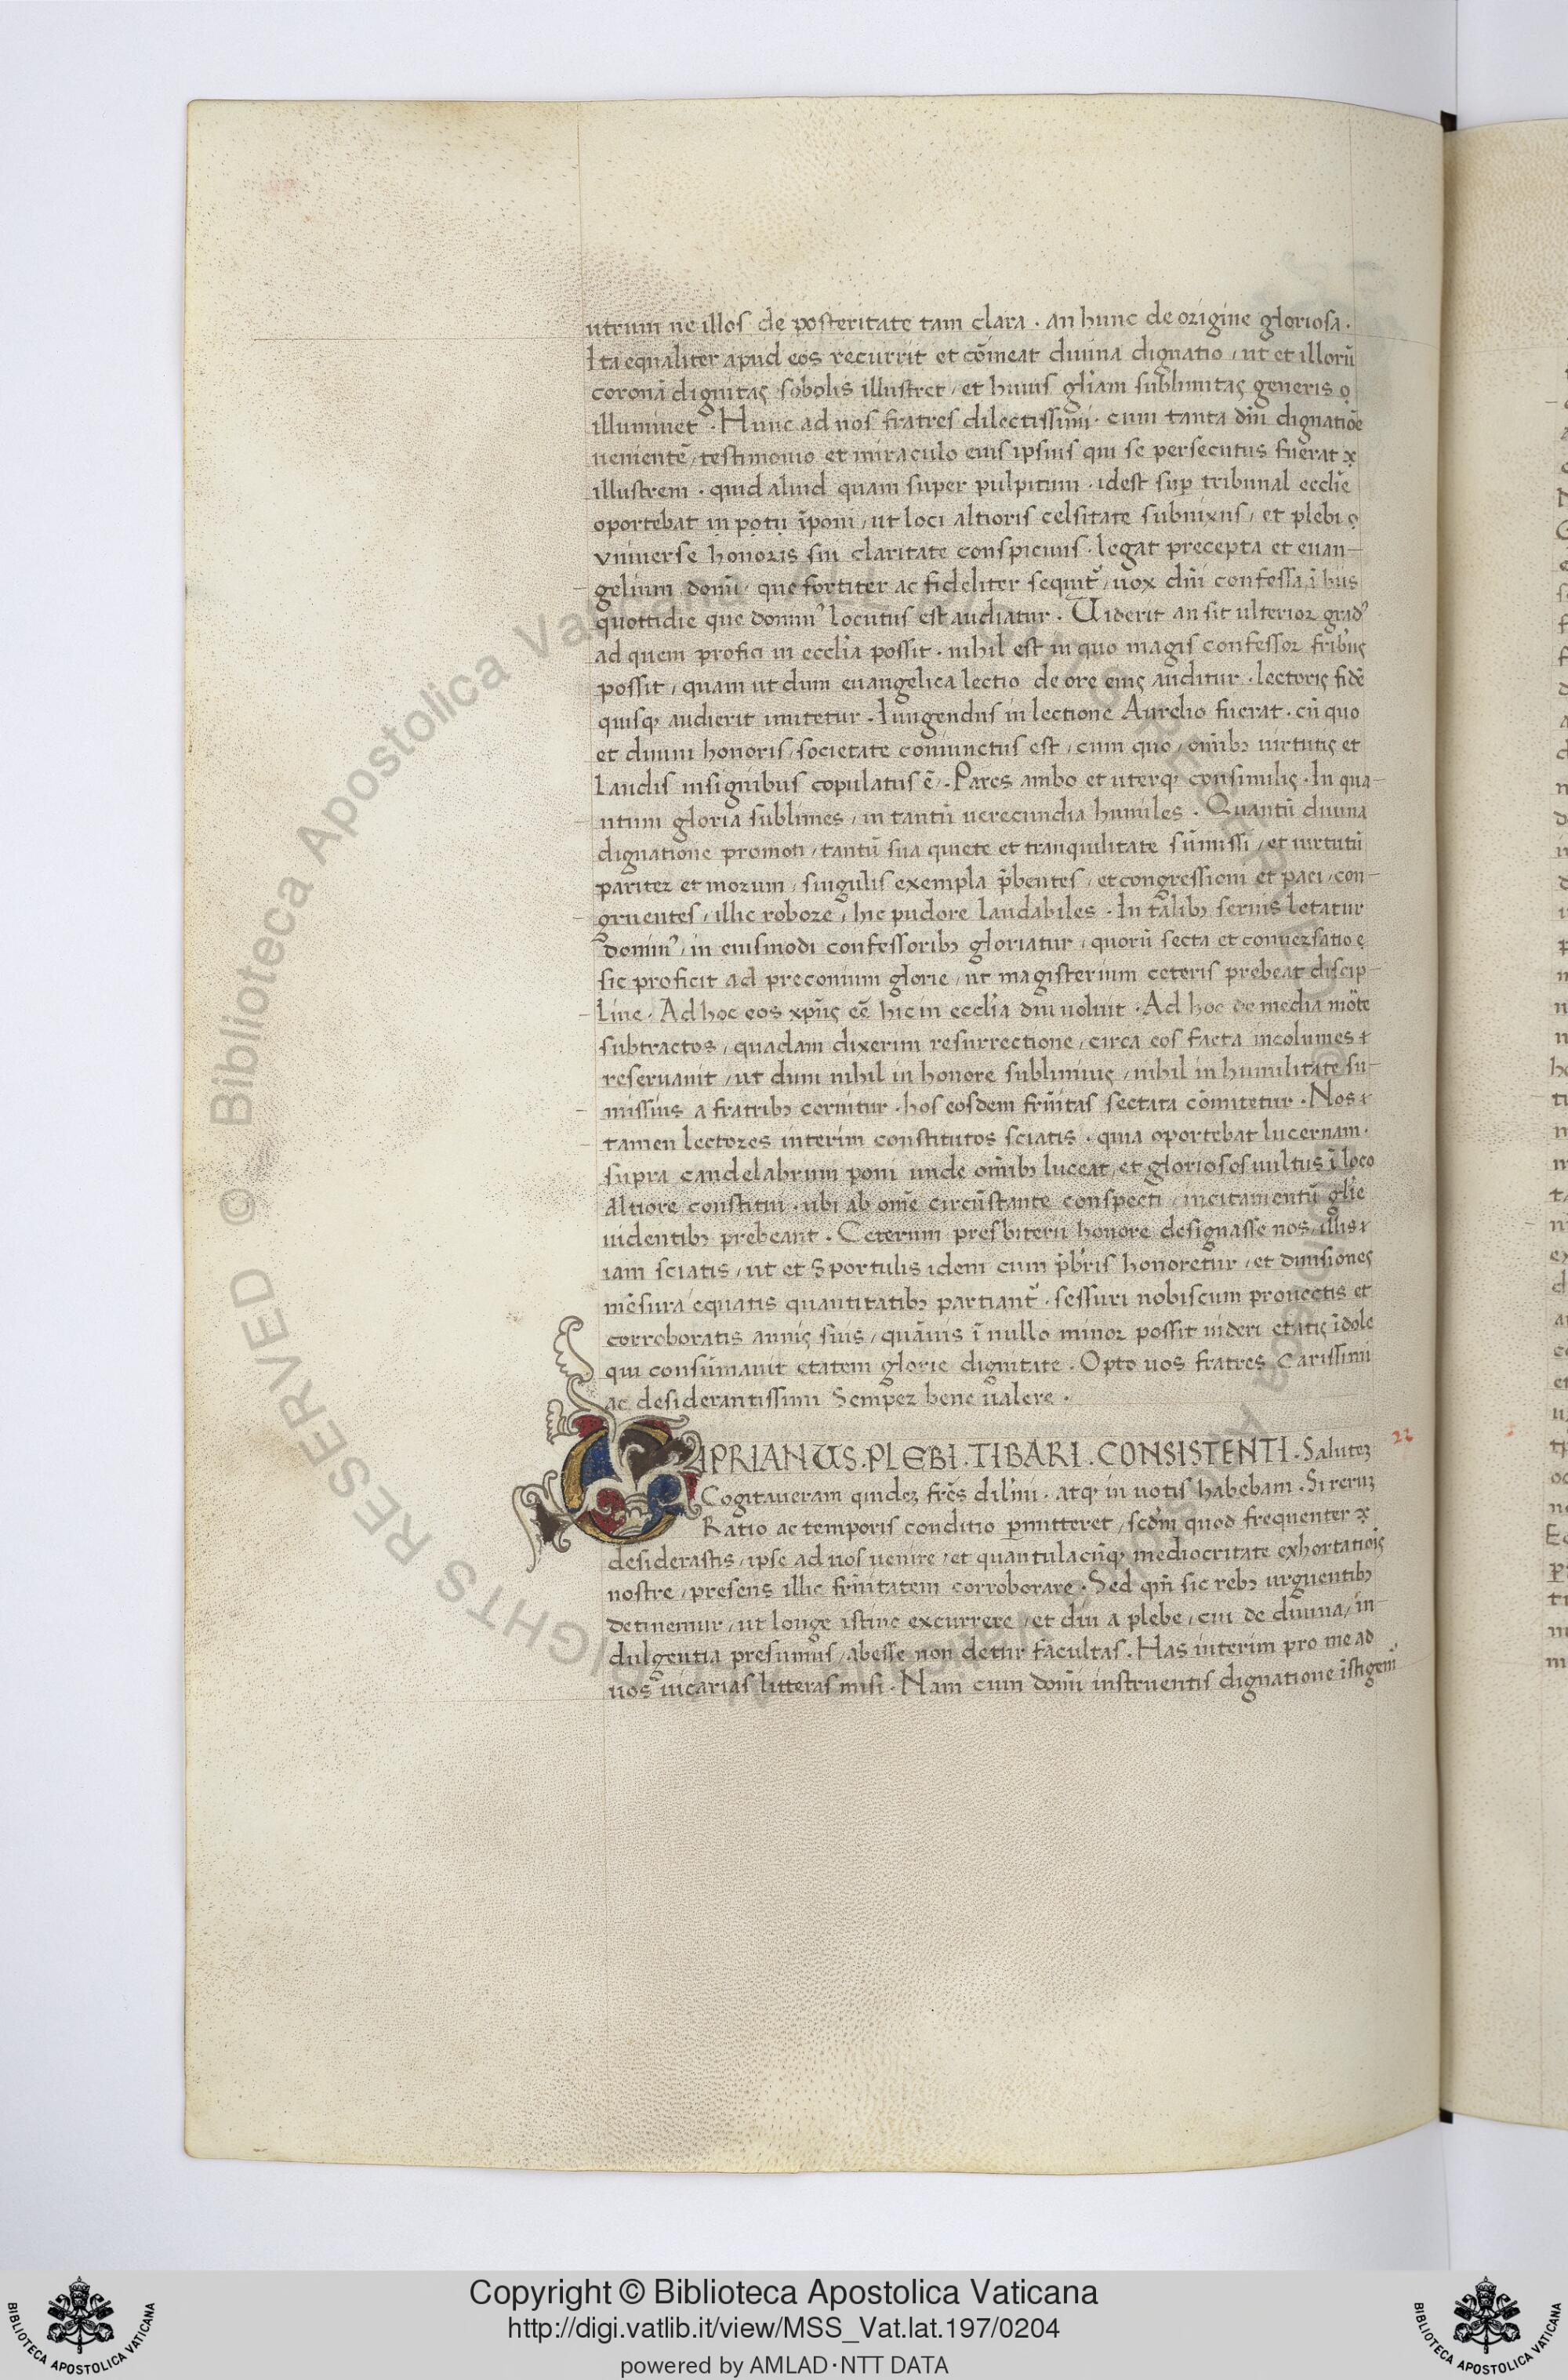 utrum ne illos de posteritate tam clara · an hunc de origine gloriosa ·
Ita equaliter apud eos recurrit et cōmeat diuina dignatio / ut et illorū
coronā dignitas sobolis illustret / et huius gliam sublimitas generis
illuminet · Hunc ad nos fratres dilectissimi · cum tanta dn̄i dignatiōe
uenientē / testimonio et miraculo eius ipsius qui se persecutus fuerat
illustrem · quid aliud quam super pulpitum · idest sup̱ tribunal ecclie
oportebat īponi / ut loci altioris celsitate subnixus / et plebi
vniuerse honoris sui claritate conspicuus · legat precepta et euan-
gelium domī · que fortiter ac fideliter sequit᷑ / uox dn̄i confessa ī hiis
quottidie que domin᾽ locutus est audiatur · Uiderit an sit ulterior grad᾽
ad quem profici in ecclia possit · nihil est in quo magis confessor fribus
possit / quam ut dum euangelica lectio de ore eius auditur · lectoris fidē
quisq; audierit imitetur · Iungendus in lectione Aurelio fuerat · cū quo
et diuini honoris / societate coniunctus est / cum quo / omībꝫ uirtutis et
laudis insignibus copulatus ē · Pares ambo et uterq; consimilis · In qua-
ntum gloria sublimes / in tantū uerecundia humiles · Quantū diuina
dignatione promoti / tantū sua quiete et tranquilitate sūmissi / et uirtutū
pariter et morum / singulis exempla p̄bentes / et congressioni et paci / con-
gruentes / illic robore / hic pudore laudabiles · In talibꝫ seruis letatur
domin᾽ / in eiusmodi confessoribꝫ gloriatur / quorū secta et conuersatio
sic proficit ad preconium glorie / ut magisterium ceteris prebeat discip-
line · Ad hoc eos xp̄us eē hic in ecclia diu uoluit · Ad hoc de media mōte
subtractos / quadam dixerim resurrectione / circa eos facta incolumes
reseruauit / ut dum nihil in honore sublimius / nihil in humilitate su-
missius a fratribꝫ cernitur · hos eosdem frn̄itas sectata cōmitetur · Nos
tamen lectores interim constitutos sciatis · quia oportebat lucernam ·
supra candelabrum poni unde omībꝫ luceat / et gloriosos uultus ī loco
Altiore constitui · ubi ab omē circūstante conspecti / incitamentū glie
uidentibꝫ prebeant · Ceterum presbiterii honore designasse nos / illis
iam sciatis / ut et Sportulis idem cum p̄bris honoretur / et diuisiones
mēsura equatis quantitatibꝫ partiant᷑ · sessuri nobiscum prouectis et
corroboratis annis suis / quāuis ī nullo minor possit uideri etatis īdole
qui consūmauit etatem glorie dignitate · Opto uos fratres Carissimi
ac desiderantissimi Semper bene ualere ·
CIPRIANUS · PLEBI · TIBARI · CONSISTENTI · Saluteꝫ 22
Cogitaueram quideꝫ frēs dilīni · atq; in uotis habebam · Si reruꝫ
Ratio ac temporis conditio p̱mitteret / scd̄m quod frequenter
desiderastis / ipse ad uos uenire / et quantulacūq; mediocritate exhortatiōis
nostre / presens illic frn̄itatem corroborare · Sed qm̄ sic rebꝫ urguentibꝫ
detinemur / ut longe istinc excurrere / et diu a plebe / cui de diuina / in
dulgentia presumus / abesse non detur facultas · Has interim pro me ad
uos uicarias litteras misi · Nam cum domī instruentis dignatione īstigem᾽
Copyright © Biblioteca Apostolica Vaticana
http://digi.vatlib.it/view/MSS_Vat.lat.197/0204
powered by AMLAD·NTT DATA